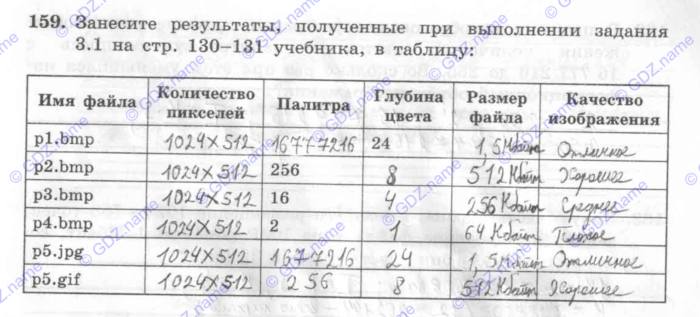 159. Занесите результаты, полученные при выполнении задания
3.1 на стр. 130–131 учебника, в таблицу:
Имя файла Количество пикселей Палитра Глубина цвета Размер файла Качество изображения
p1.bmp 1024×512 16777216 24 1,5 Мбайт Отличное
p2.bmp 1024×512 256 8 512 Кбайт Хорошее
p3.bmp 1024×512 16 4 256 Кбайт Среднее
p4.bmp 1024×512 2 1 64 Кбайт Плохое
p5.jpg 1024×512 1677216 24 1,5 Мбайт Отличное
p5.gif 1024×512 256 8 512 Кбайт Хорошее
© GDZ.name